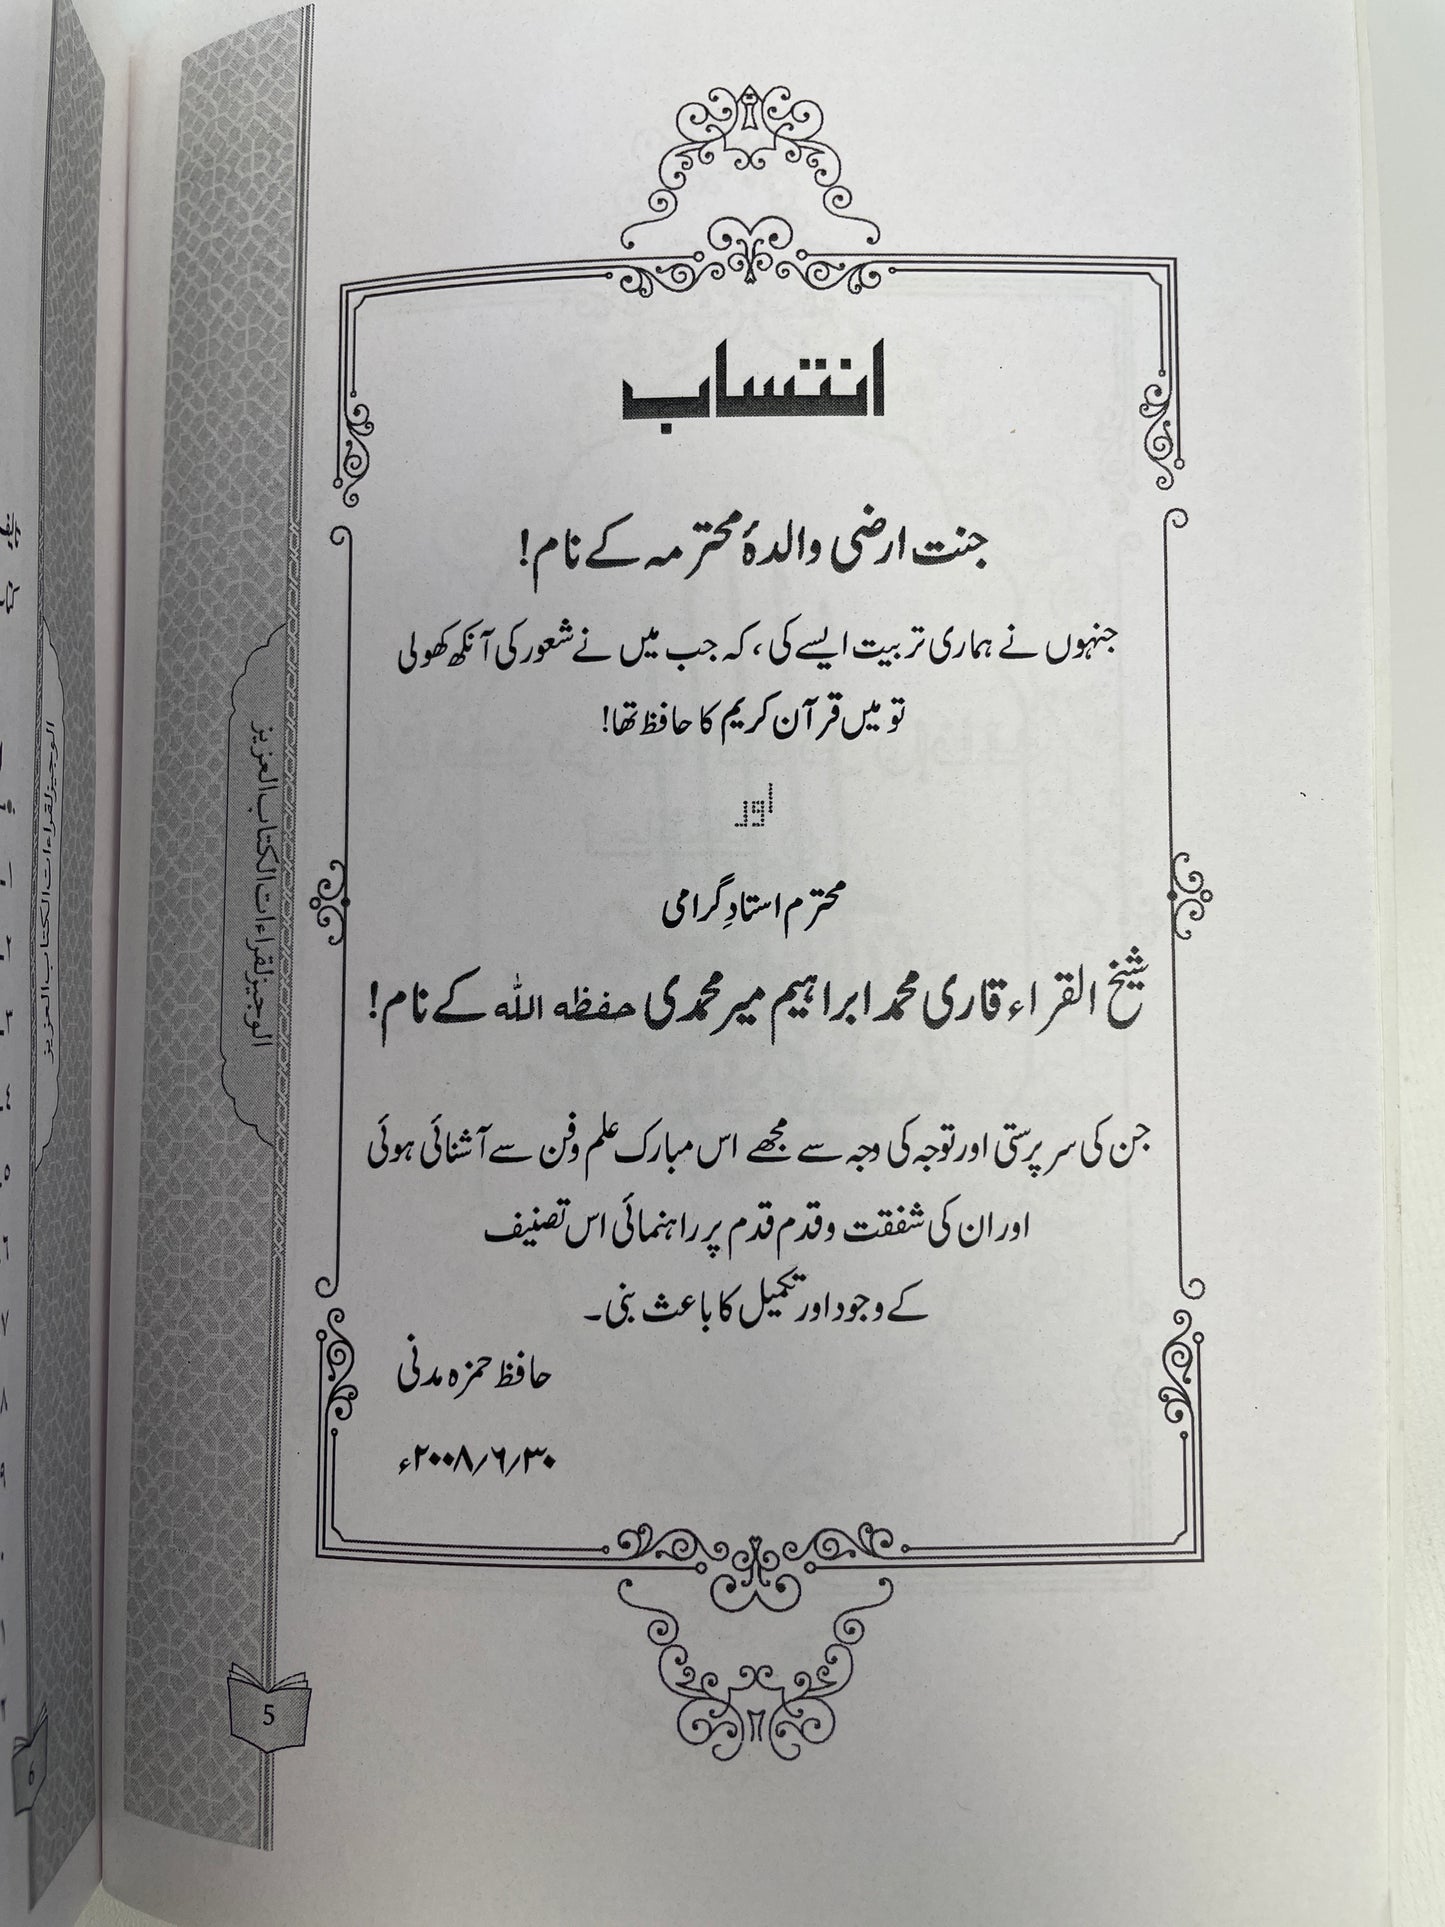 انتساب
جنت ارضی والدۂ محترمہ کے نام!
جنہوں نے ہماری تربیت ایسے کی، کہ جب میں نے شعور کی آنکھ کھولی
تو میں قرآن کریم کا حافظ تھا!
اور
محترم استادِ گرامی
شیخ القراء قاری محمد ابراہیم میر محمدی حفظه الله کے نام!
جن کی سرپرستی اور توجہ کی وجہ سے مجھے اس مبارک علم وفن سے آشنائی ہوئی
اور ان کی شفقت و قدم قدم پر راہنمائی اس تصنیف
کے وجود اور تکمیل کا باعث بنی۔
حافظ حمزہ مدنی
۳۰/۶/۲۰۰۸ء
الوجيز لقراءات الكتاب العزيز
5
الوجيز لقراءات الكتاب العزيز
6